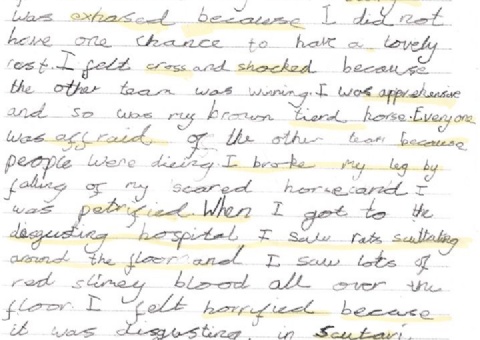 was exhased because I did not
have one chance to have a lovely
rest. I felt cross and shocked because
the other team was wining. I was apprehensive
and so was my brown tierd horse. Everyone
was affraid of the other team because
people were dieing. I broke my leg by
falling of my scared horse and I
was petrified. When I got to the
disgusting hospital I saw rats scuttaling
around the floor and I saw lots of
red slimey blood all over the
floor. I felt horrified because
it was disgusting, in Scutari.